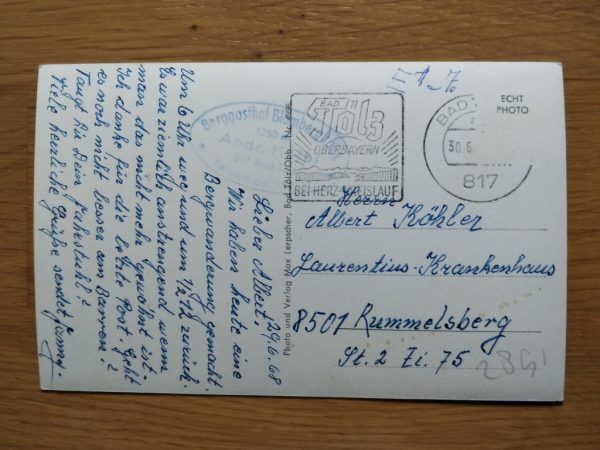 29.6.68
Lieber Albert,
Wir haben heute eine
Bergwanderung gemacht.
Um 6 Uhr weg und um 1/2 zurück.
Es war ziemlich anstrengend wenn
man das nicht mehr gewohnt ist.
Ich danke für die letzte Post. Geht
es noch nicht besser am Barren?
Taugt Dir Dein Fahrstuhl?
Viele herzliche Grüße sendet
Berggasthof
Andr.
Photo und Verlag Max Lerpscher, Bad Tölz/Obb.
BAD
Tölz
OBERBAYERN
BEI HERZ-KREISLAUF
BAD
30.6.
817
ECHT
PHOTO
Herrn
Albert Köhler
Laurentius-Krankenhaus
8501 Rummelsberg
St. 2 Zi. 75